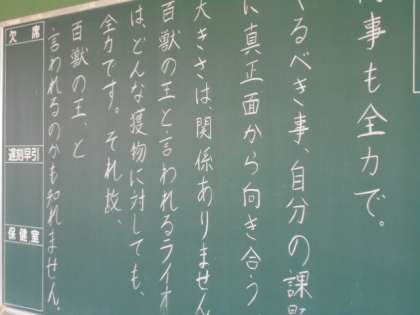 何事も全力で。
るべき事、自分の課題
に真正面から向き合う
大きさは、関係ありません
百獣の王と言われるライオ
は、どんな獲物に対しても、
全力です。それ故、
百獣の王、と
言われるのかも知れません。
欠席
遅刻早引
保健室